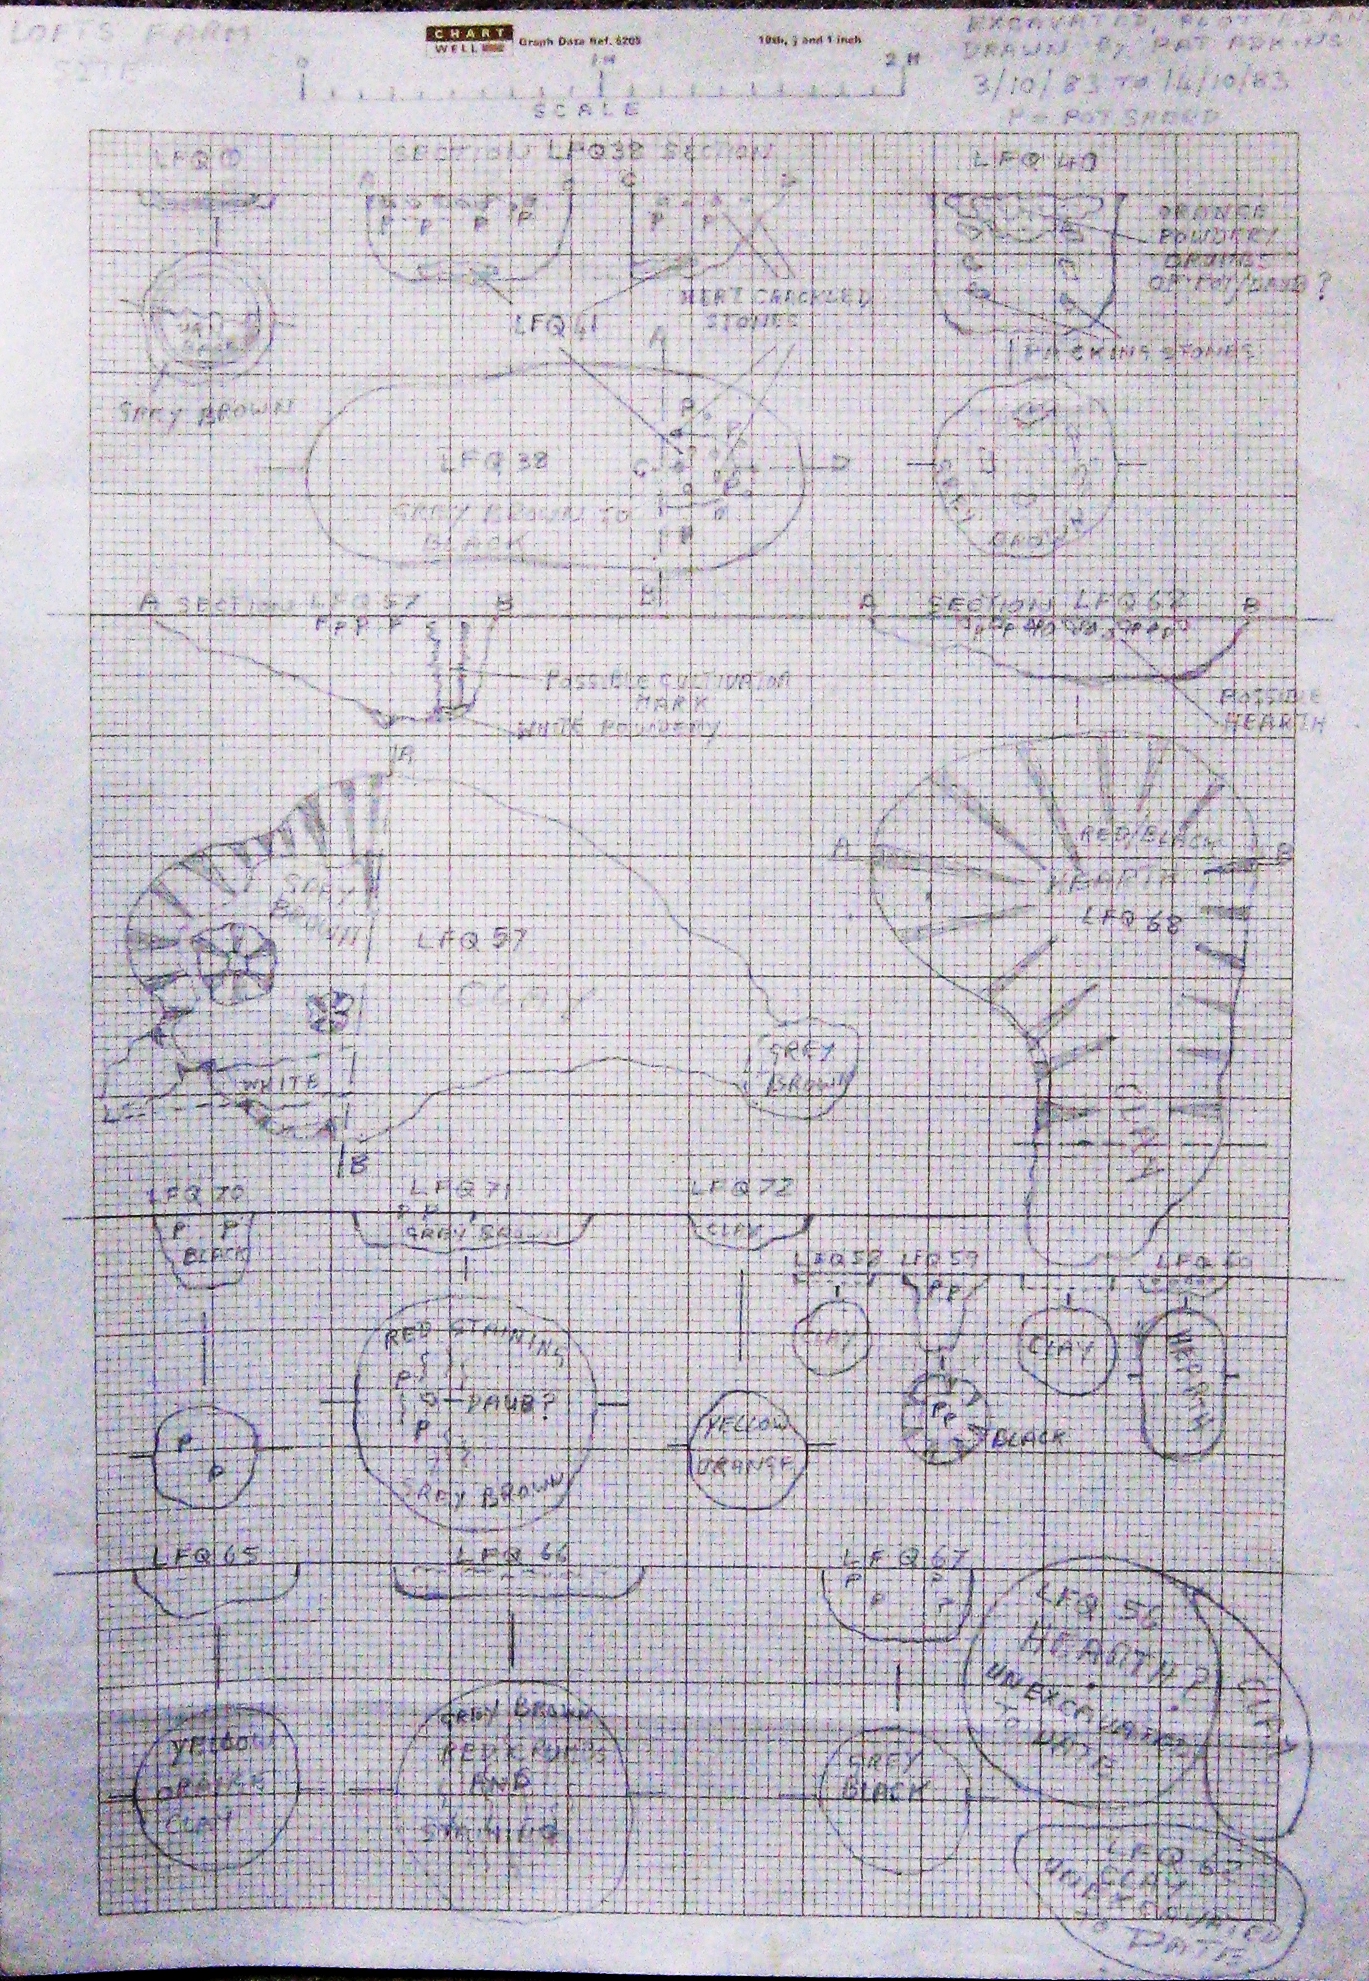 LOFTS FARM
SITE
CHART
WELL
Graph Data Ref. 6205
10th, ½ and 1 inch
EXCAVATED, PLOTTED AND
DRAWN BY PAT ADKINS
3/10/83 TO 14/10/83
P = POT SHERD
0 1M 2M
SCALE
LFQ
SECTION LFQ38 SECTION
LFQ 40
C D
P P P P
P P
ORANGE
POWDERY
OF
?
LFQ 41
HEAT CRACKLED
STONES
PACKING STONES
GREY BROWN
A
LFQ 38
C D
GREY BROWN TO
BLACK
B
GREY
BROWN
A SECTION LFQ 57 B
P P P P
A SECTION LFQ 68 B
POSSIBLE CULTIVATOR
MARK
WHITE POWDERY
POSSIBLE
HEARTH
A
GREY
BROWN
LFQ 57
CLAY
WHITE
GREY
BROWN
B
A B
RED/BLACK
HEARTH
LFQ 68
CLAY
LFQ 70
P P
BLACK
LFQ 71
P P
GREY BROWN
LFQ 72
CLAY
LFQ 58
LFQ 59
P P
LFQ
CLAY
CLAY
HEARTH
P P
BLACK
P
P
RED STAINING
P
DAUB?
P
GREY BROWN
YELLOW
ORANGE
LFQ 65
LFQ 66
LFQ 67
P P
P ?
LFQ 56
HEARTH?
UNEXCAVATED
TO
DATE
YELLOW
ORANGE
CLAY
GREY BROWN
RED
AND
STAINING
GREY
BLACK
LFQ
CLAY
UNEXCAVATED
TO
DATE